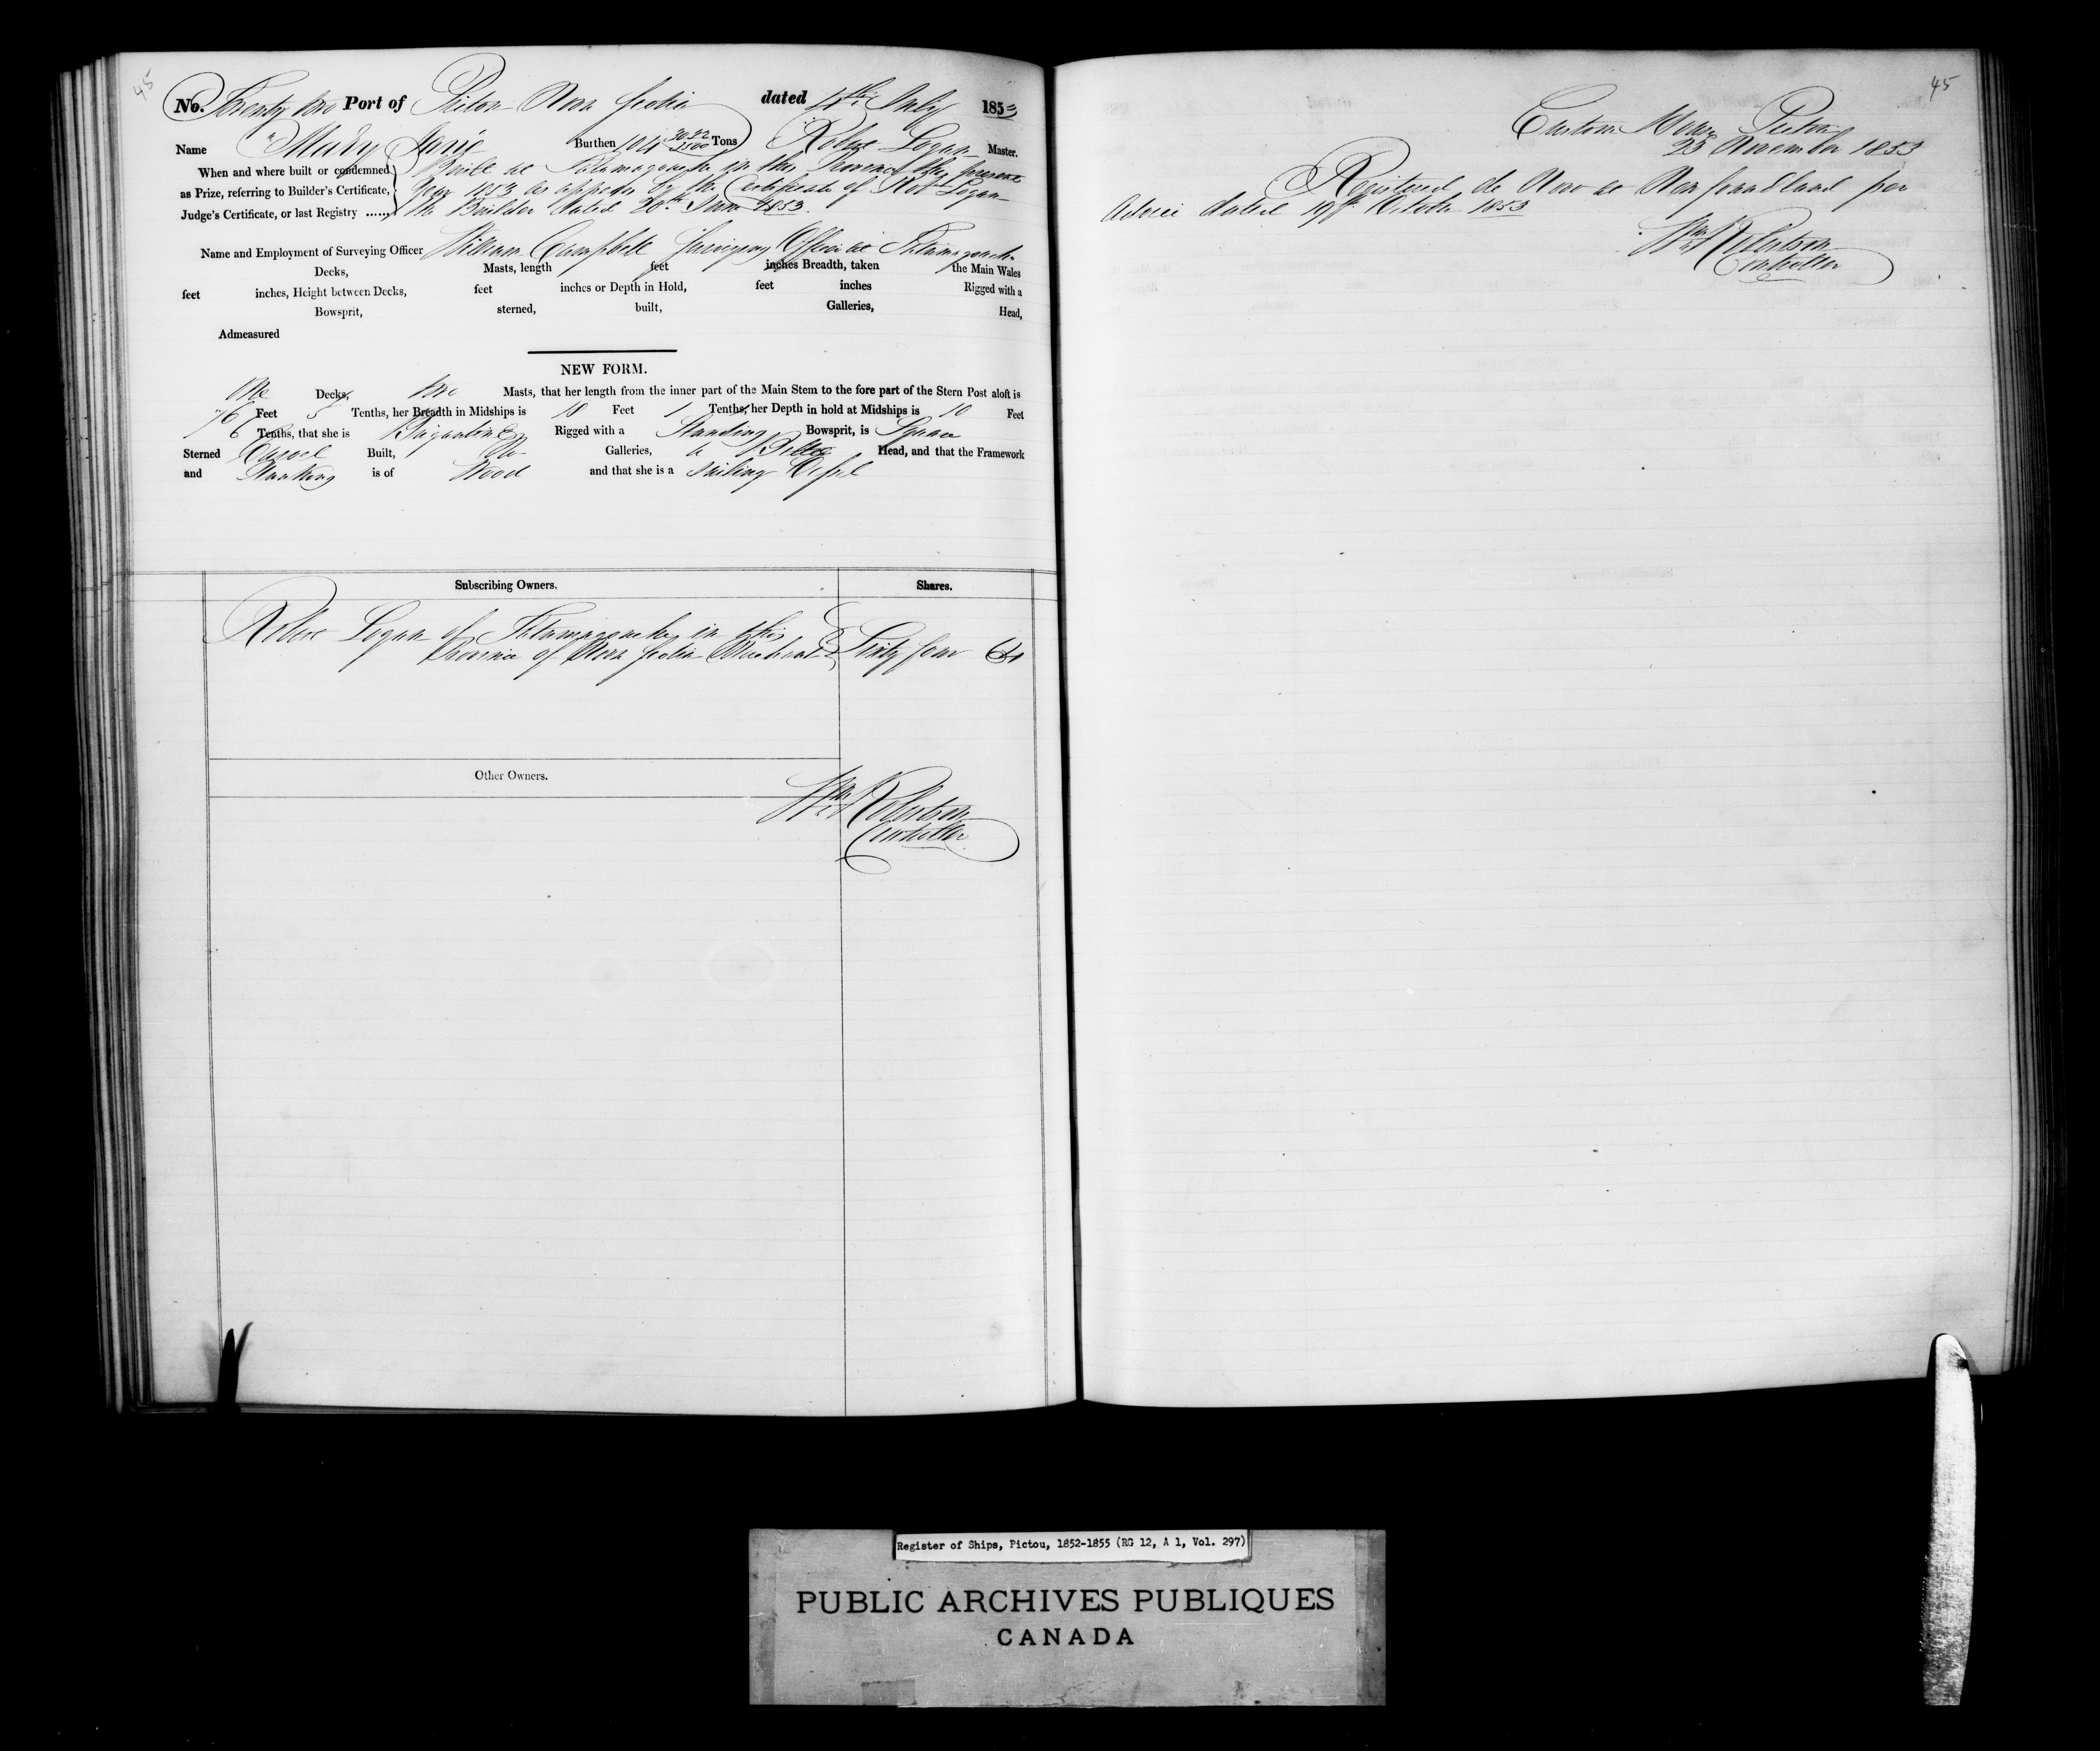 45
No. Twenty two Port of Pictou Nova Scotia dated 4th July 1853
Name "Mary Jane" Burthen 104 Tons Robert Logan Master.
When and where built or condemned
as Prize, referring to Builder's Certificate,
Judge's Certificate, or last Registry ......
Built at Tatamagouche in this Province the present
Year 1853 as appears by the Certificate of Robt Logan
the Builder dated 20th June 1853.
Name and Employment of Surveying Officer William Campbell Surveying Officer at Tatamagouche
Decks, Masts, length feet inches Breadth, taken the Main Wales
feet inches, Height between Decks, feet inches or Depth in Hold, feet inches Rigged with a
Bowsprit, sterned, built, Galleries, Head,
Admeasured
NEW FORM.
One Decks, two Masts, that her length from the inner part of the Main Stem to the fore part of the Stern Post aloft is
76 Feet 5 Tenths, her Breadth in Midships is Feet 1 Tenths, her Depth in hold at Midships is 10 Feet
6 Tenths, that she is Brigantine Rigged with a Standing Bowsprit, is Square
Sterned Carvel Built, No Galleries, a Billet Head, and that the Framework
and Planking is of Wood and that she is a Sailing Vessel
Subscribing Owners. Shares.
Robert Logan of Tatamagouche in this
Province of Nova Scotia Merchant Sixty four 64
Other Owners.
Wm Robertson
Controller
45
Custom House Pictou
23 November 1853
Registered de Novo at Newfoundland per
Advice dated 19th October 1853
Wm Robertson
Controller
Register of Ships, Pictou, 1852-1855 (RG 12, A 1, Vol. 297)
PUBLIC ARCHIVES PUBLIQUES
CANADA